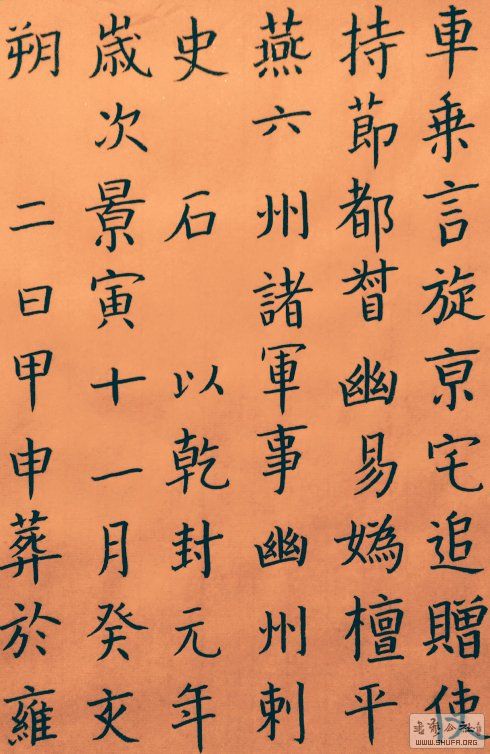 車乗言旋亰宅追贈使
持節都督幽易媯檀平
燕六州諸軍事幽州刺
史 石 以乾封元年
歳次景寅十一月癸亥
朔 二日甲申葬於雍
WWW.SHUFA.ORG